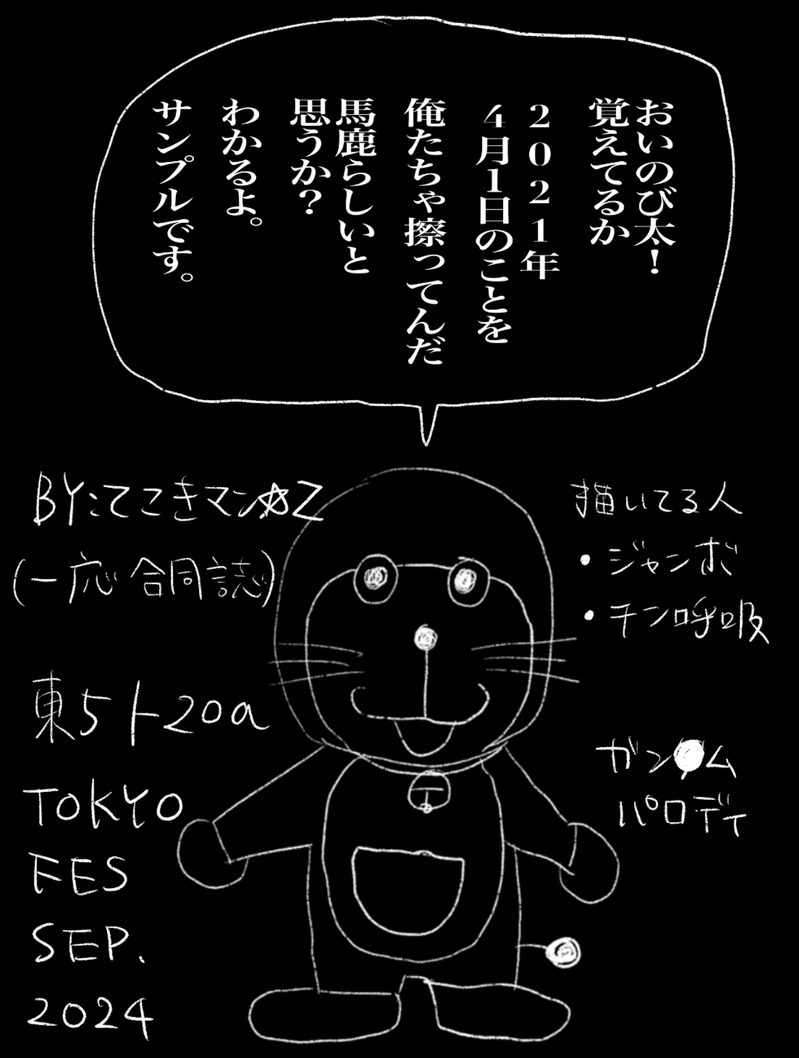 おいのび太！
覚えてるか
２０２１年
４月１日のことを
俺たちゃ擦ってんだ
馬鹿らしいと
思うか？
わかるよ。
サンプルです。
BY:てこきマン☆Z
(一応合同誌)
東5ト20a
TOKYO
FES
SEP.
2024
描いてる人
・ジャンボ
・チン呼吸
ガン●ム
パロディ